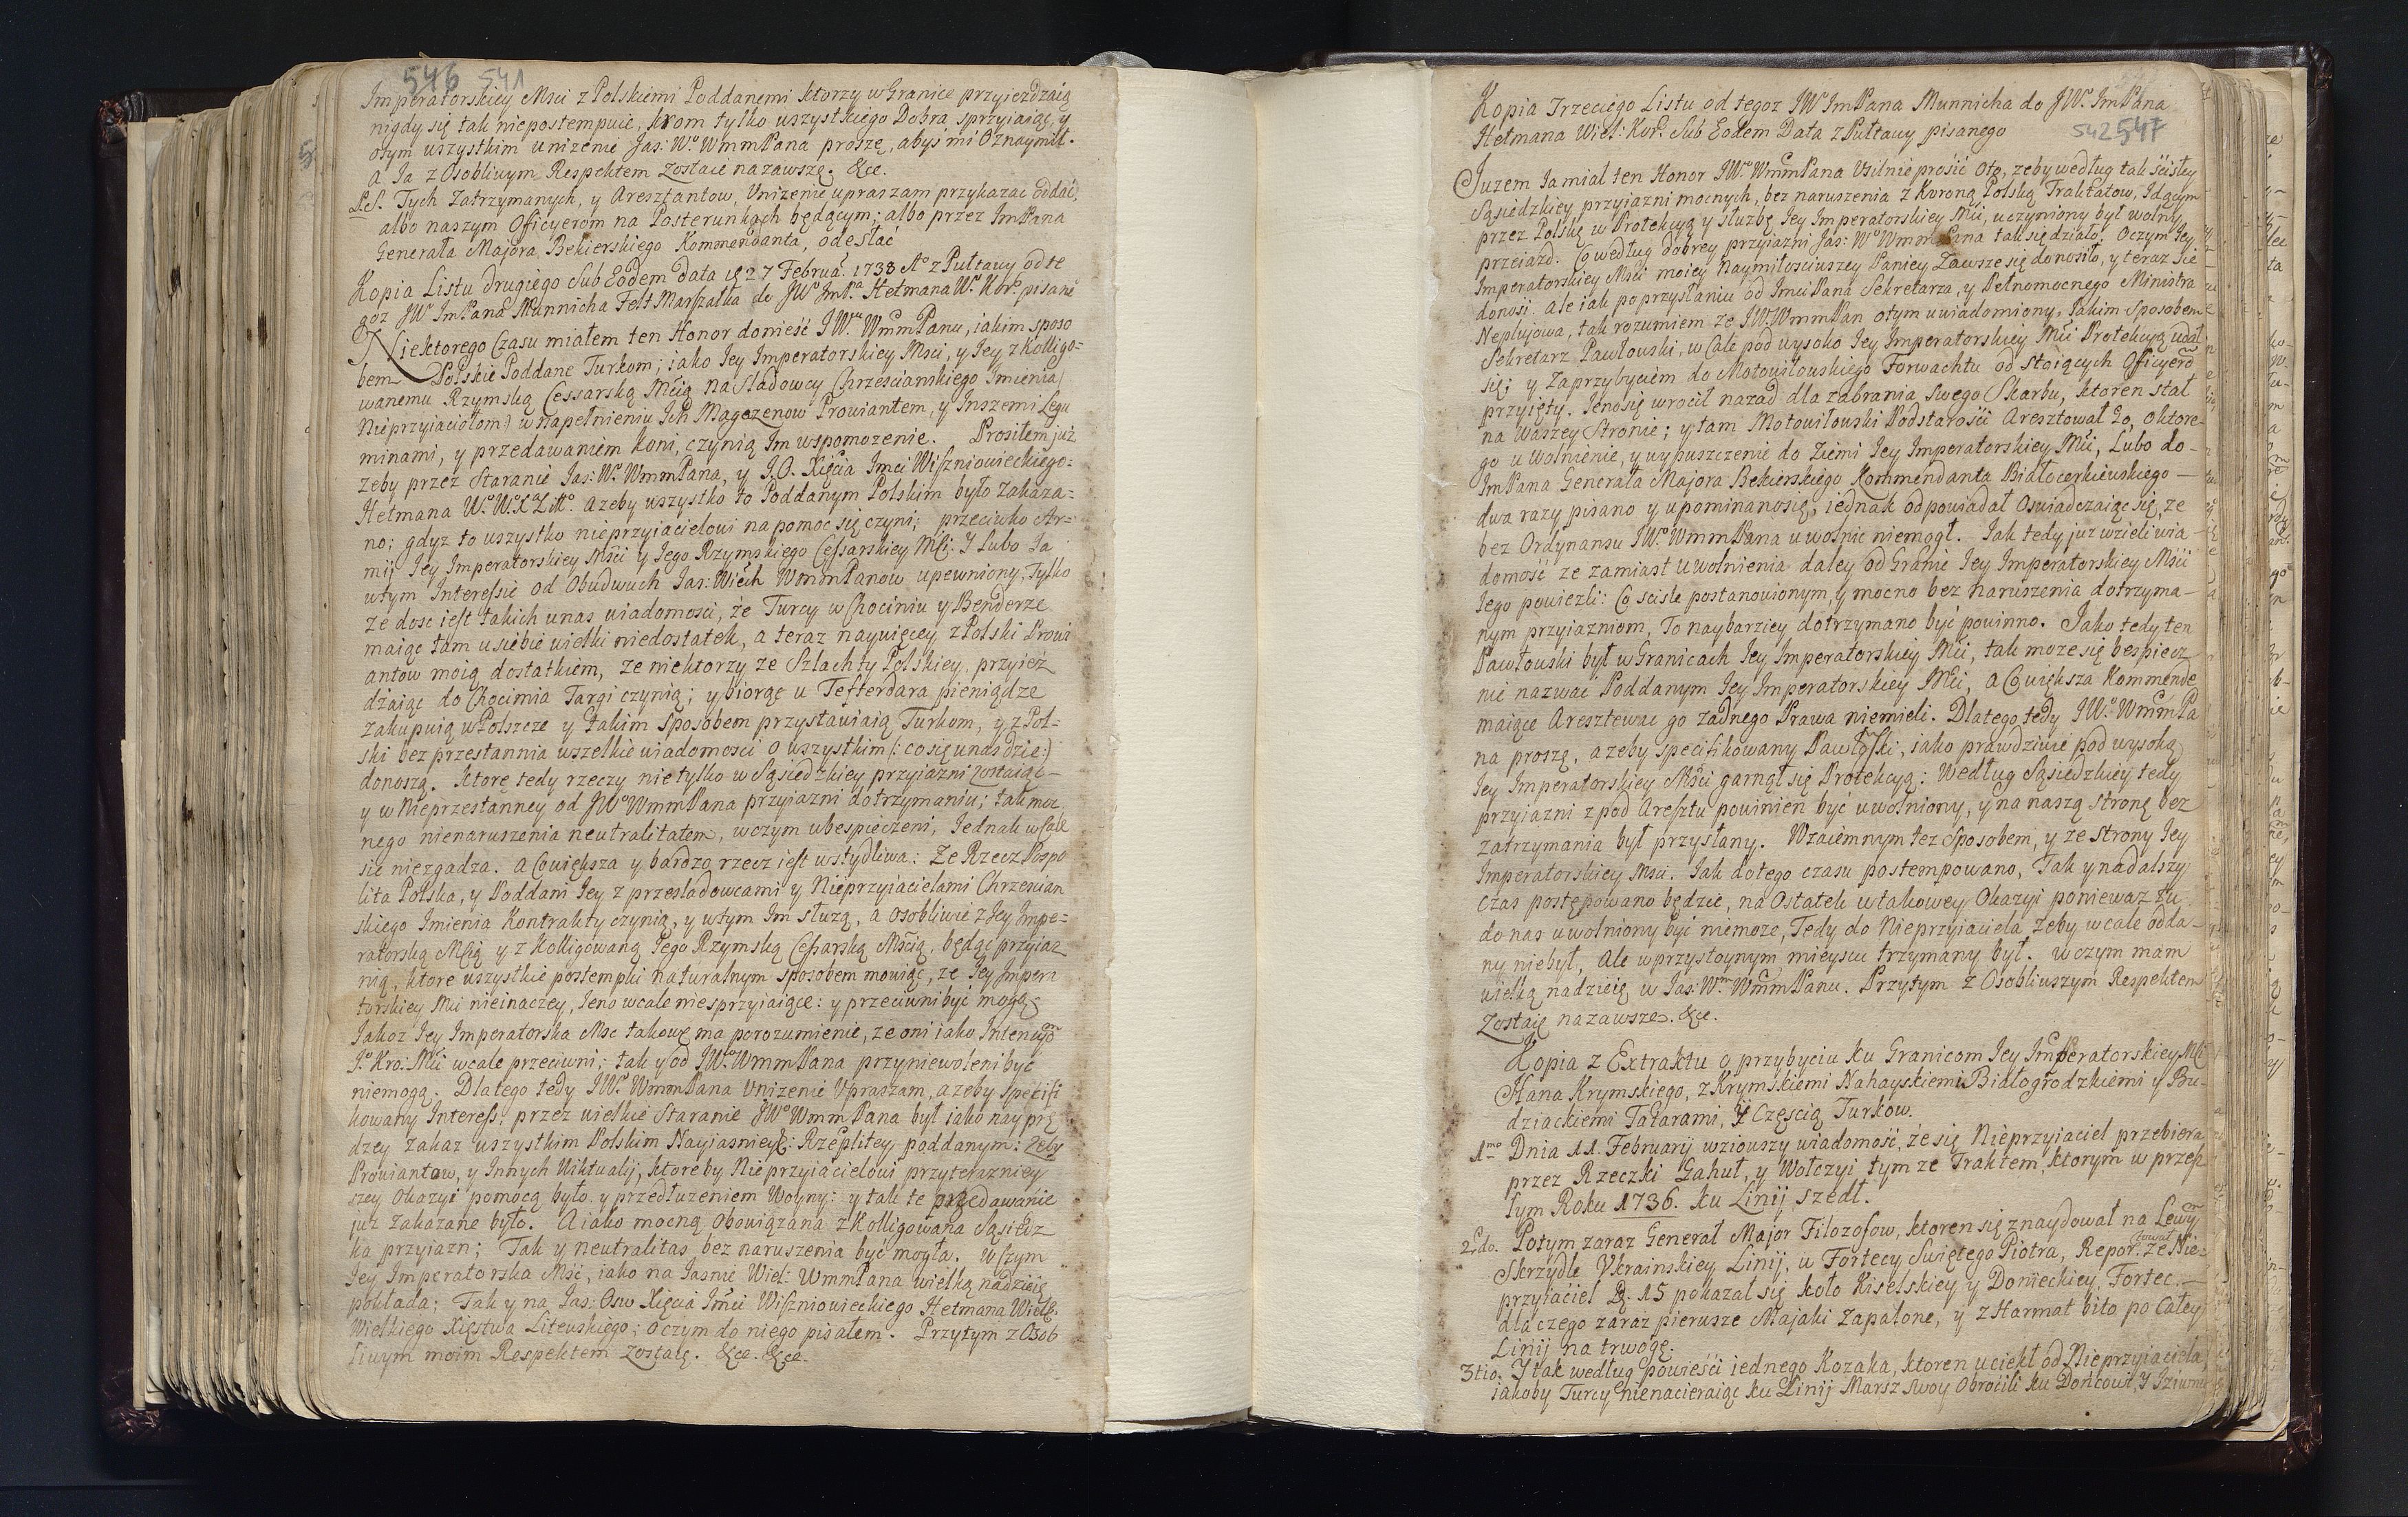 546 541
Imperatorskiey Msci z Polskiemi Poddanemi ktorzy w Granice przyiezdzaią
nigdy się tak niepostempuie, krom tylko wszystkiego Dobra sprzyiaiąc, y
otym wszystkim unizenie Jas: Wo WmmPana proszę, abyś mi Oznaymił.
a Ia z Osobliwym Respektem zostaie nazawszę. &ce.
P.S. Tych Zatrzymanych, y Aresztantow, Unizenie upraszam przykazac oddać,
albo naszym Officyerom na Posterunkach będącym; albo przez ImPana
Generała Majora Bekierskiego Kommendanta, odesłać
Kopia Listu drugiego Sub Eodem Data 27 Februa. 1738 Ao z Pułtawy od te
goz JWo ImPana Munnicha Felt Marszałka do JWo ImPa Hetmana Wo Kor. pisane
Niektorego Czasu miałem ten Honor donieść JW. WmmPanu, iakim sposo
bem Polskie Poddane Turkom; iako Jey Imperatorskiey Msci, y Jey z Kolligo-
wanemu Rzymską Cessarską Mcią na Sladowcy Chrzescianskiego Imienia
Nieprzyiaciołom) w napełnieniu Jch Magazenow Prowiantem, y Inszemi Legu
minami, y przedawaniem koni, czynią Im wspomozenie. Prosiłem już
zeby przez Staranie Jas: Wo WmmPana, y J.O. Xięcia Imci Wiszniowieckiego
Hetmana Wo W.X Litto. azeby wszystko to Poddanym Polskim było Zakaza-
no; gdyz to wszystko nieprzyiacielowi na pomoc się czyni; przeciwko Ar-
mij Jey Imperatorskiey Msci y Jego Rzymskiego Cessarskiey Msci. J Lubo Ja
wtym Interessie od Obudwuch Jas: Wiech WmmPanow upewniony, Tylko
ze dosc iest takich unas wiadomosci, że Turcy w Chociniu y Benderze
maiąc tam u siebie wielki niedostatek, a teraz naywięcey z Polski Prowi
antow moią dostatkiem, ze niektorzy ze Szlachty Polskiey, przyież
dzaiąc do Chocimia Targi czynią; y biorąc u Tefterdara pieniądze
zakupuią w Polszcze y takim Sposobem przystawiaią Turkom, y z Pol-
ski bez przestannia wszelkie wiadomosci o wszystkim (: co się unas dzie:)
donoszą. Ktore tedy rzeczy nie tylko w Sąsiedzkiey przyiazni zostaiąc
y w Nieprzestanney od JWo WmmPana przyiazni dotrzymaniu; tak moc
nego nienaruszenia neutralitatem, wczym ubespieczeni, Jednak w Cale
się niezgadza. a Cowiększa y bardzo rzecz iest wstydliwa: Ze Rzecz Pospo
lita Polska, y Poddani Jey z przesladowcami y Nieprzyiacielami Chrzescian
skiego Imienia Kontrakty czynią, y wtym Im służą, a osobliwie z Jey Impe-
ratorską Mcią y z Kolligowaną Jego Rzymską Cessarską Mscią, będąc przyiaz
nią, ktore wszystkie postempki naturalnym sposobem mowiąc, ze Jey Impera
torskiey Mci nieinaczey, Jeno wcale niesprzyiaiące: y przeciwni być mogą
Jakoz Jey Imperatorska Msc takowe ma porozumienie, ze oni iako Intencyo
Jo Kro: Mci wcale przeciwni; tak y od JWo WmmPana przyniewoleni być
niemogą. Dlatego tedy JWo WmmPana Unizenie Upraszam, azeby specifi
kowany Interess, przez wielkie Staranie JWo WmmPana był iako nayprę
dzey zakaz wszystkim Polskim Nayiasnieyß: Rzeplitey poddanym: zeby
Prowiantow, y Innych Wiktualij, ktoreby Nieprzyiacielowi przyterazniey
szey Okazyi pomocą było y przedłuzeniem Woyny: y tak te przedawanie
juz zakazane było. A iako mocną obowiązana z Kolligowana Sąsiedz
ka przyiazn; Tak y neutralitas bez naruszenia być mogła. Wczym
Jey Imperatorska Mść, iako na Jasnie Wiel: WmmPana wielką nadzieię
pokłada; Tak y na Jas: Osw Xięcia Imci Wiszniowieckiego Hetmana Wielk.
Wielkiego Xięstwa Litewskiego; oczym do niego pisałem. Przytym z Osob
liwym moim Respektem zostaię. &ce. &ce.
Kopia Trzeciego Listu od tegoz JWo ImPana Munnicha do JWo. ImPana
Hetmana Wiel: Kor. Sub Eodem Data z Pułtawy pisanego
542 547
Juzem Ja miał ten Honor JWo WmmPana Usilnie prosić Oto, zeby według tak ścisłey
Sąsiedzkiey przyiazni mocnych, bez naruszenia z Koroną Polską Traktatow, Idącym
przez Polskę w Protekcyą y Służbę Jey Imperatorskiey Mci, uczyniony był wolny
przeiazd. Co według dobrey przyiazni Jas: Wo WmmPana tak się działo. Oczym Jey
Imperatorskiey Msci moiey Naymiłosciwszey Paniey Zawsze się donosiło, y teraz sie
donosi. Ale iak poprzysłaniu od Imci Pana Sekretarza, y Pełnomocnego Ministra
Neplujowa, tak rozumiem ze JW. WmmPan otym uwiadomiony, Jakim Sposobem
Sekretarz Pawłowski, w Cale pod wysoko Jey Imperatorskiey Mci Protekcyą udał
się; y Zaprzybyciem do Motowiłowskiego Forwachtu od Stoiących Officyero
przyięty. Jeno się wrocił nazad dla zabrania Swego Skarbu, ktoren stał
na Waszey Stronie; y tam Motowiłowski Podstarości Aresztował Go, oktore
go uwolnienie, y wypuszczenie do Ziemi Jey Imperatorskiey Mci, Lubo do-
ImPana Generała Majora Bekierskiego Kommendanta Białocerkiewskiego
dwa razy pisano y upominano się, iednak odpowiadał Oswiadczaiąc się, ze
bez Ordynansu JWo WmmPana uwolnic niemogł. Jak tedy juz wzieli wia-
domość ze zamiast uwolnienia daley od Granic Jey Imperatorskiey Mści
Jego powiezli: Co scisle postanowionym, y mocno bez naruszenia dotrzyma-
nym przyiazniom, To naybarziey dotrzymano być powinno. Jako tedy ten
Pawłowski był w Granicach Jey Imperatorskiey Mci, tak moze się bespiecz
nie nazwać Poddanym Jey Imperatorskiey Mci, a Cowiększa Kommende
maiące Aresztowac go żadnego Prawa niemieli. Dlatego tedy JWo WmmPa
na proszę, azeby specifikowany Pawłoski, iako prawdziwie pod wysoką
Jey Imperatorskiey Mści garnął się Protekcyą: Według Sąsiedzkiey tedy
przyiazni z pod Aresztu powinien być uwolniony, y na naszą stronę bez
zatrzymania był przysłany. Wzaiemnym tez Sposobem, y ze strony Jey
Imperatorskiey Msci. Jak dotego czasu postempowano, Tak y nadalszy
czas postępowano będzie, na Ostatek wtakowey Okazyi poniewaz tu
do nas uwolniony być niemoze, Tedy do Nieprzyiaciela zeby wcale odda-
ny niebył, Ale wprzystoynym mieyscu trzymany był. wczym mam
wielką nadzieię w Jas: Wm WmmPanu. Przytym z Osobliwszym Respektem
zostaię nazawsze. &ce.
Kopia z Extraktu o przybyciu ku Granicom Jey Imperatorskiey Mci
Hana Krymskiego, z Krymskiemi Nahayskiemi Białogrodzkiemi y Bu-
dziackiemi Tatarami, y Częscią Turkow.
1mo Dnia 11. Februarij wziowszy wiadomość, że się Nieprzyiaciel przebiera
przez Rzeczki Gahuł, y Wołczyi tym ze Traktem, ktorym w przeß
łym Roku 1736. ku Linij szedł.
2do. Potym zaraz Generał Major Filozofow, ktoren się znaydował na Lewy
Skrzydle Ukrainskiey Linij, w Fortecy Swiętego Piotra, Repor:tował ze Nie-
przyiaciel D. 15 pokazał się koło Kiselskiey y Donieckiey Fortec.
dla czego zaraz pierwsze Majaki Zapalone, y z Harmat bito po Całey
Linij na trwogę.
3tio. J tak według powieści iednego Kozaka, ktoren uciekł od Nieprzyiaciela,
iakoby Turcy nienacieraiąc ku Linij Marsz swoy Obrocili ku Doncowi, y